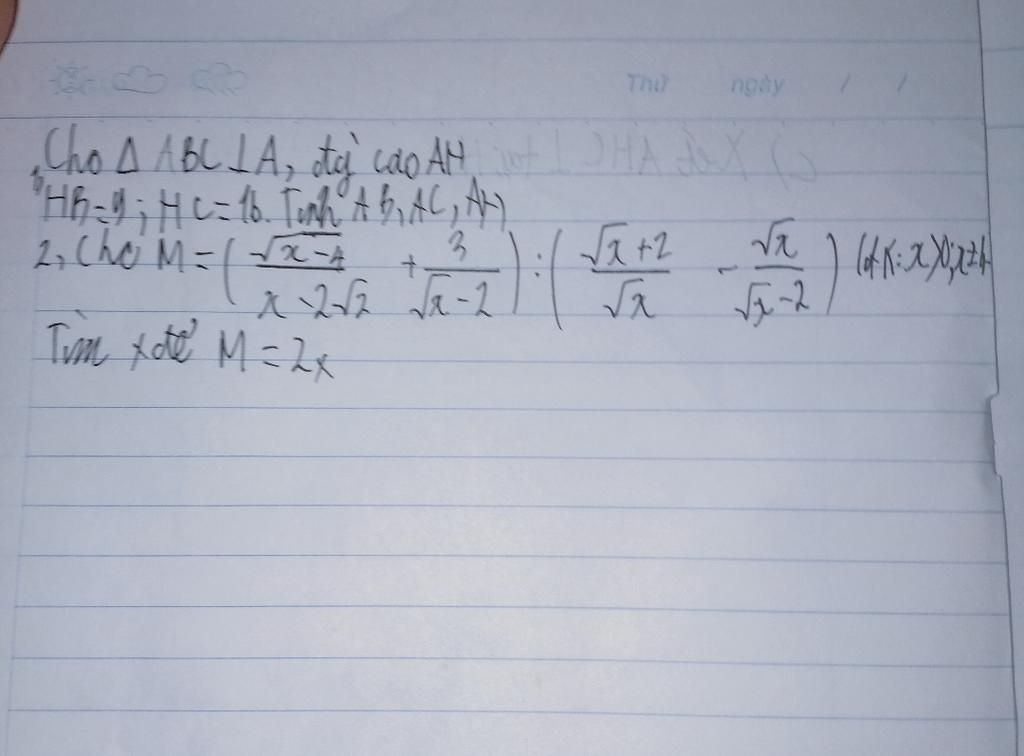 Thứ ngày / /
1, Cho Δ ABC ⊥ A, đg` cao AH
HB=9; HC=16. Tính AB, AC, AH
2, Cho M = (√(x-4)/(x-2√2) + 3/(√x-2)) : ((√x+2)/√x - √x/(√x-2)) (đK: x>0; x≠4
Tìm x để M = 2x